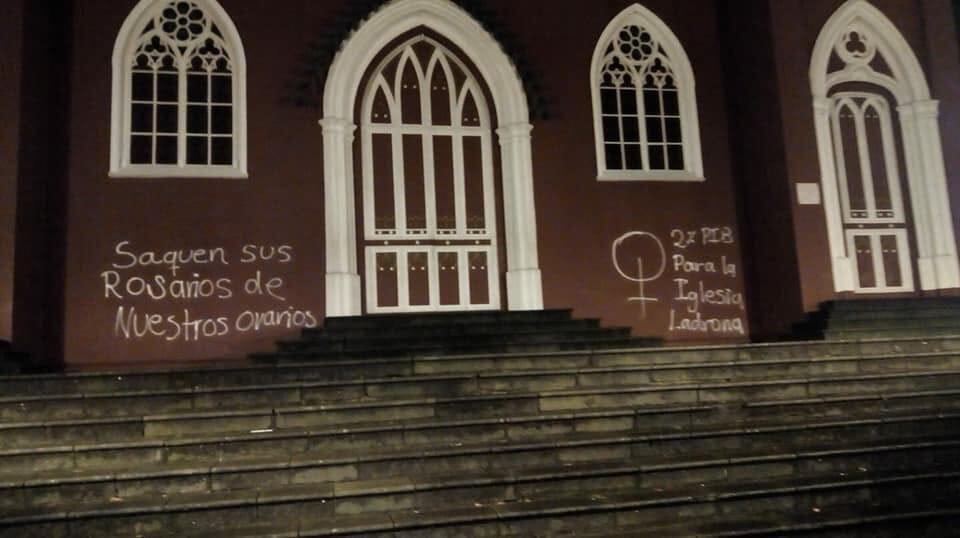 Saquen sus
Rosarios de
Nuestros ovarios
2% PIB
Para la
Iglesia
Ladrona